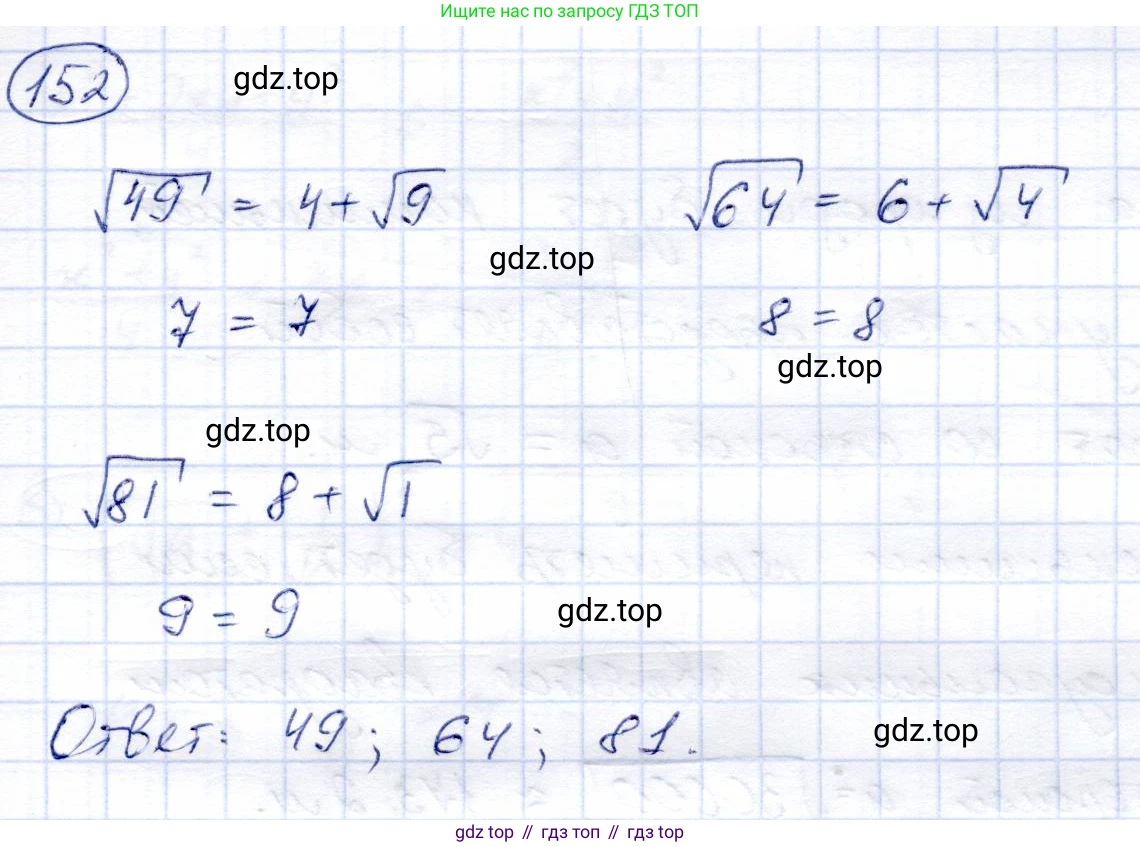 Ищите нас по запросу ГДЗ ТОП
152
gdz.top
√49 = 4 + √9
√64 = 6 + √4
gdz.top
7 = 7
8 = 8
gdz.top
gdz.top
√81 = 8 + √1
9 = 9
gdz.top
Ответ: 49; 64; 81.
gdz.top
gdz top // гдз топ // гдз top